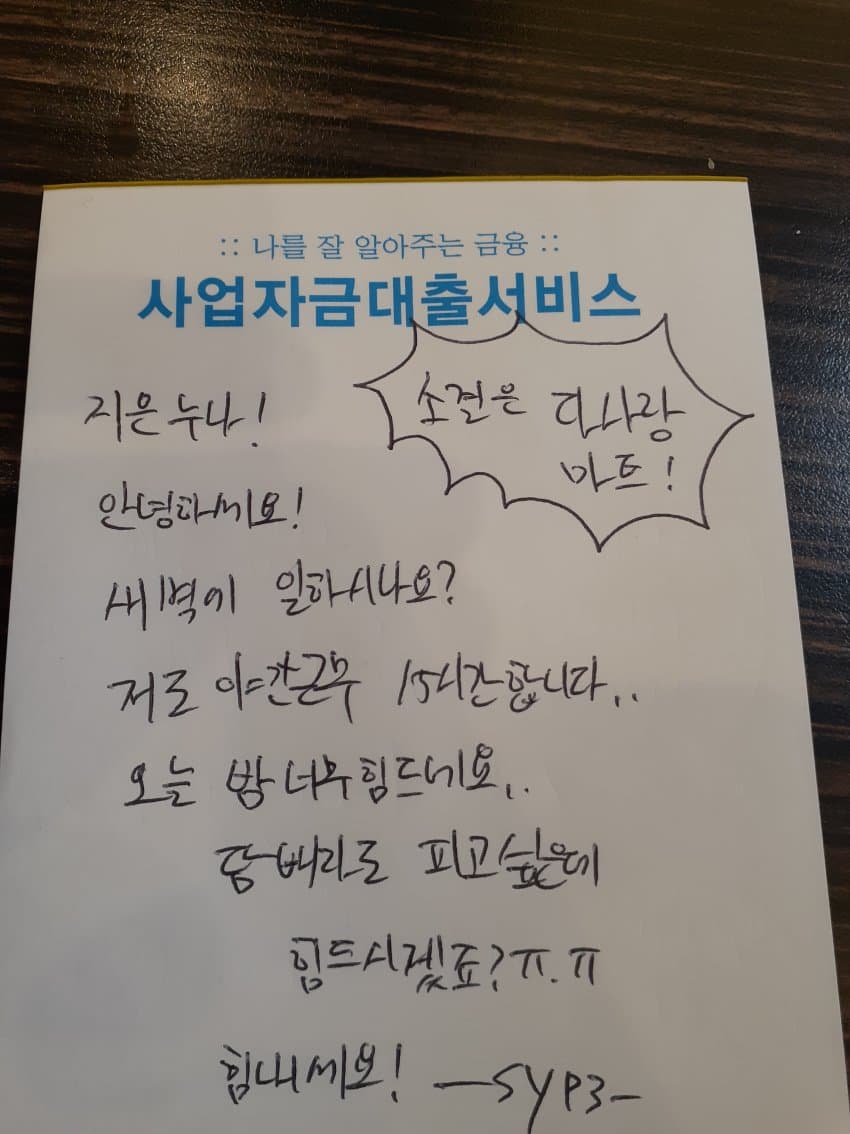 :: 나를 잘 알아주는 금융 ::
사업자금대출서비스
지은누나!
소견은 다사랑
마트!
안녕하세요!
새벽에 일하시나요?
저도 야간근무 15시간합니다..
오늘 밤 너무 힘드네요..
담배라도 피고싶은데
힘드시겠죠? ㅠ.ㅠ
힘내세요! -SYP3-